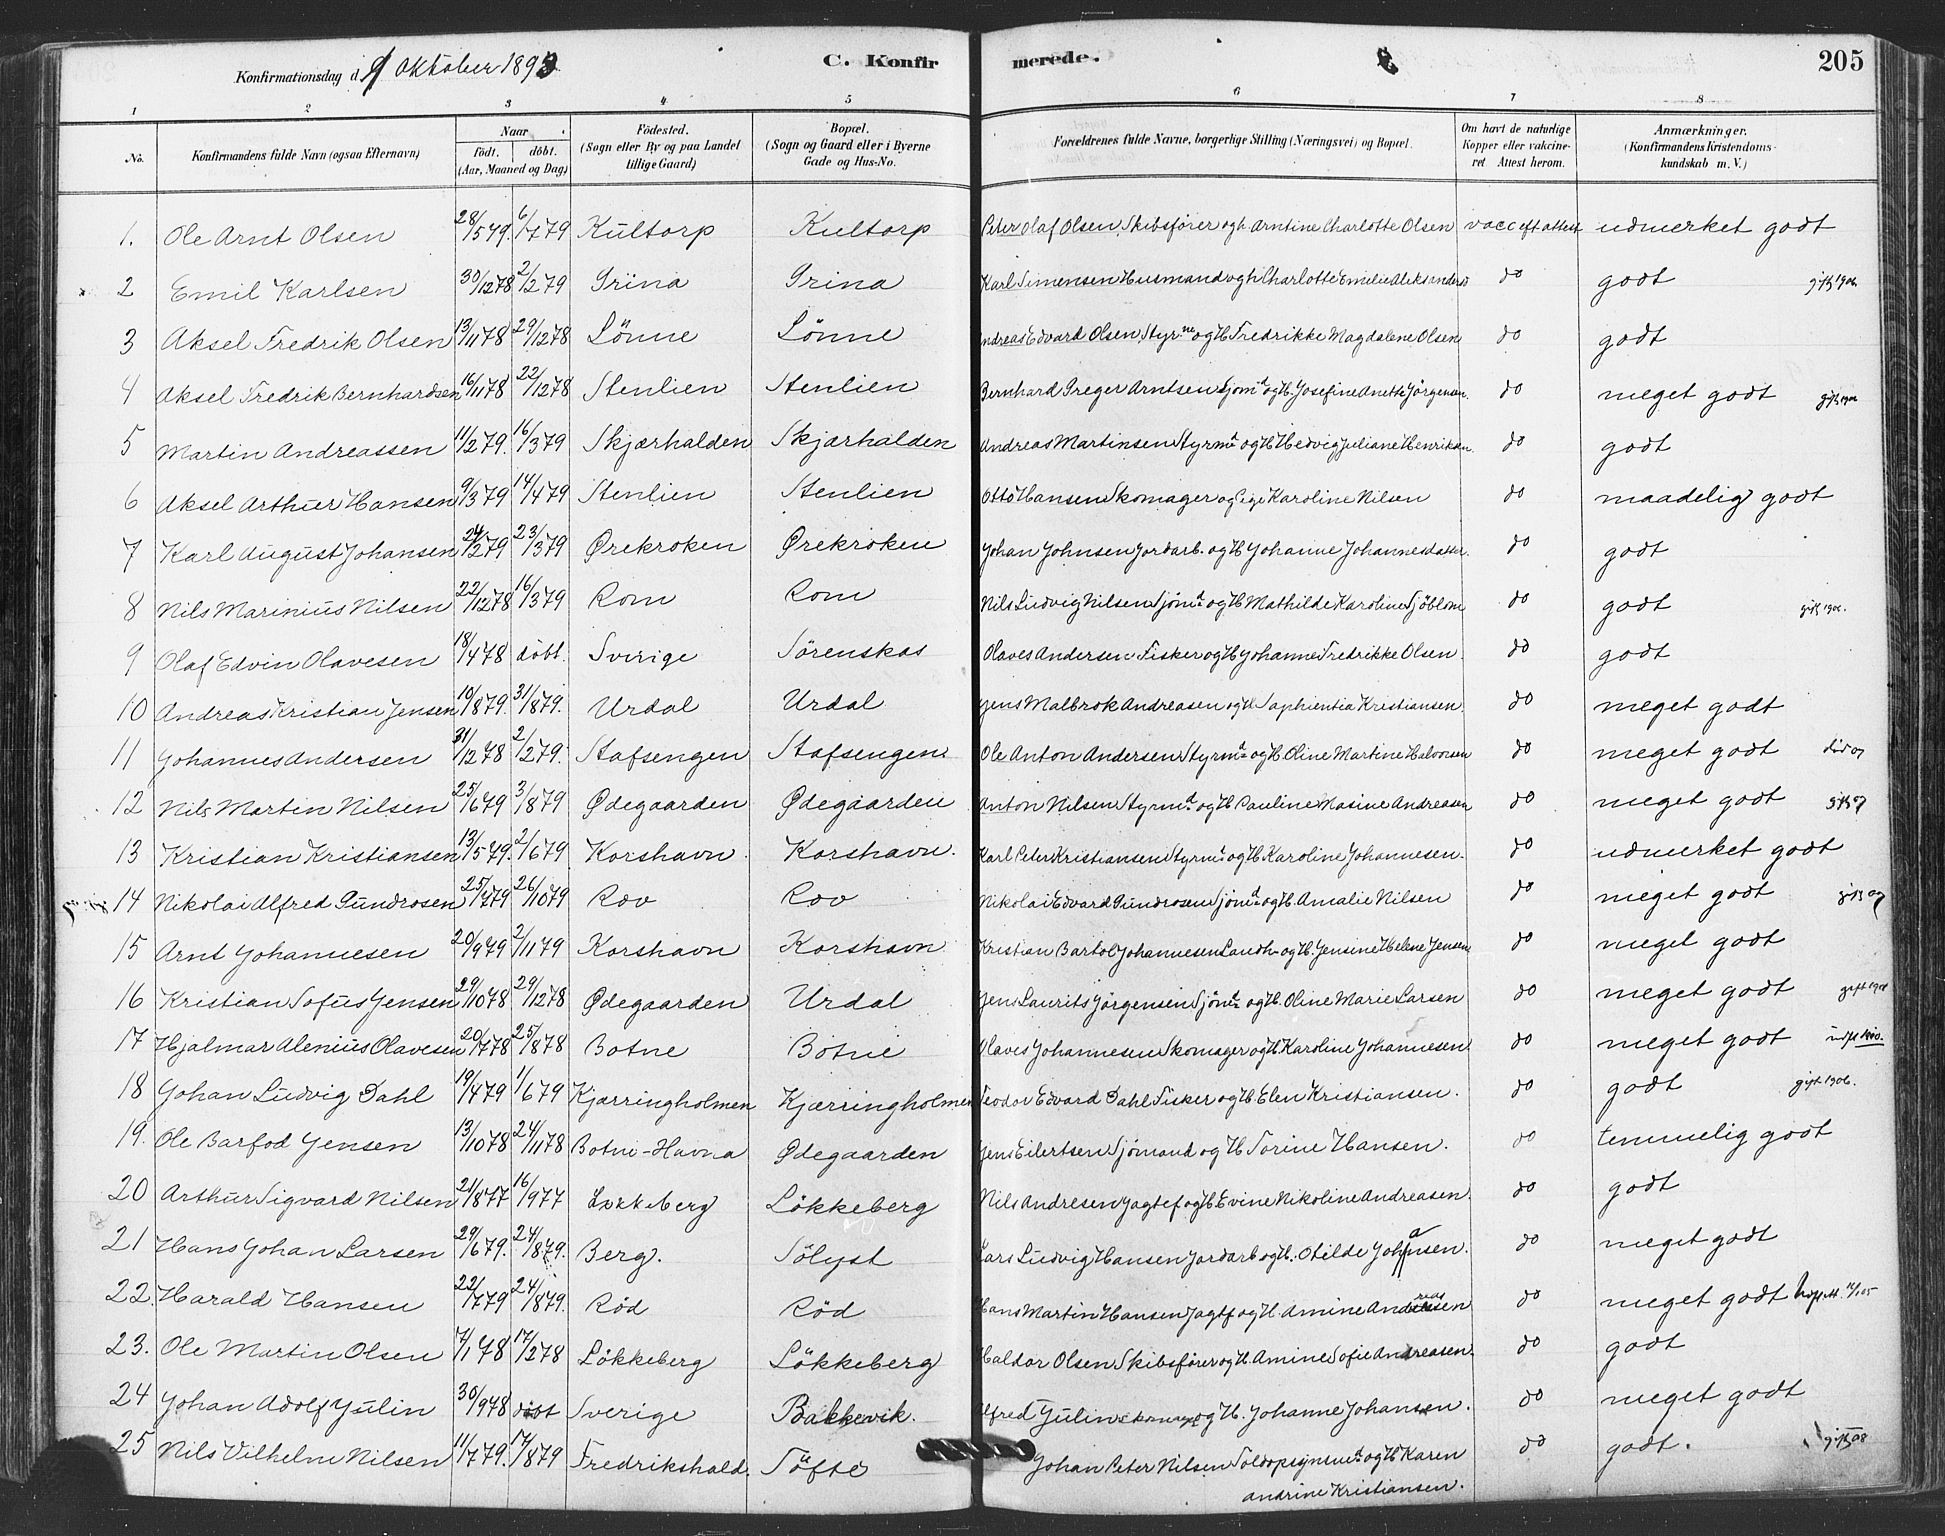 Konfirmationsdag d. 1 Oktober 1893
C. Konfir merede.
205
1 2 3 4 5 6 7 8
No.
Konfirmandens fulde Navn (ogsaa Efternavn)
Naar
födt. döbt.
(Aar, Maaned og Dag)
Födested.
(Sogn eller By og paa Landet tillige Gaard)
Bopæl.
(Sogn og Gaard eller i Byerne Gade og Hus-No.
Forældrenes fulde Navne, borgerlige Stilling (Næringsvei) og Bopæl.
Om havt de naturlige Kopper eller vakcineret Attest herom.
Anmærkninger.
(Konfirmandens Kristendomskundskab m. V.)
1. Ole Arnt Olsen 28/5 79. 6/7 79 Kultorp Kultorp Peter Olaf Olsen, Skibsfører og h. Arntine Charlotte Olsen vacc eft attest udmerket godt
2 Emil Karlsen 30/12 78 2/2 79 Grina Grina Karl Simensen Husmand og h Charlotte Emilie Aleksanders godt do gift 1906
3 Aksel Fredrik Olsen 13/11 78 29/12 78 Lönne Lönne Andreas Edvard Olsen, Styrm og H Fredrikke Magdalene Olsen do godt
4 Aksel Fredrik Bernhardsen 16/11 78 22/12 78 Stenlien Stenlien Bernhard Greger Arntsen Sjomd og H. Josefine Anette Jörgensen. do meget godt
5 Martin Andreassen 11/2 79. 16/3 79 Skjærhalden Skjærhalden Andreas Martinsen Styrmd og H Hedvig Juliane Henriksen do godt
6 Aksel Arthur Hansen 9/3 79 14/4 79 Stenlien Stenlien Otto Hansen Skomager og Pige Karoline Nilsen do maadelig godt
7 Karl August Johansen 24/2 79 23/3 79 Ørekroken Ørekroken Johan Johnsen Jordarb. og H Johanne Johannesdatter. do godt
8 Nils Marinius Nilsen 22/12 78 16/3 79 Rom Rom Nils Ludvig Nilsen Sjömd og H Mathilde Karoline Sjöblom do godt
9 Olaf Edvin Olavesen 18/4 78 döbt. Sverige Sörenskas Olaves Andersen Fisker og H Johanne Fredrikke Olsen. do godt
10 Andreas Kristian Jensen 10/8 79. 31/8 79. Urdal Urdal Jens Malbrok Andreasen og H Saphientia Kristiansen. do meget godt
11 Johannes Andersen 31/12 78 2/2 79. Stafsengen Stafsengen. Ole Anton Andersen Styrmd og H Oline Martine Halvorsen do meget godt
12 Nils Martin Nilsen 25/6 79 3/8 79 Ødegaarden Ødegaarden Anton Nilsen Styrmd og H Pauline Masine Andreasen do meget godt
13 Kristian Kristiansen 13/5 79. 2/6 79 Korshavn. Korshavn. Karl Peter Kristiansen Styrmd og H. Karoline Johannesen. do udmerket godt
14 Nikolai Alfred Gundrosen 25/7 79 26/10 79 Rov Rov Nikolai Edvard Gundrosen Sjömd og H. Amalie Nilsen do meget godt
15 Arnt Johannesen 20/9 79 2/11 79 Korshavn Korshavn Kristian Bartol Johannesen Landh og H. Jensine Helene Jensen do meget godt
16 Kristian Sofus Jensen 29/10 78 29/12 78 Ødegaarden Urdal Jens Laurits Jörgensen Sjömd og H. Oline Marie Larsen do meget godt
17 Hjalmar Alenius Olavesen 20/7 78 25/8 78 Botne Botne Olaves Johannesen Skomager og H Karoline Johannesen do meget godt
18 Johan Ludvig Dahl 19/4 79 1/6 79 Kjærringholmen Kjærringholmen Teodor Edvard Dahl Fisker og H Elen Kristiansen. do godt gift 1906.
19. Ole Barfod Jensen 13/10 78 24/11 78 Botne-Havna Ødegaarden Jens Eilertsen Sjömand og H Sorine Hansen. do temmelig godt
20 Arthur Sigvard Nilsen 21/8 77 16/9 77 Løkkeberg Lökkeberg Nils Andresen Jagtef og H Evine Nikoline Andreasen. do godt
21 Hans Johan Larsen 29/6 79. 24/8 79. Berg. Sölyst Lars Ludvig Hansen Jordarb og H. Otilde Johansen. do meget godt
22. Harald Hansen 22/7 79 24/8 79. Röd Röd Hans Martin Hansen Jagtf og H. Amine Andreasen do meget godt
23. Ole Martin Olsen 7/1 78 17/2 78 Lökkeberg Lökkeberg Haldor Olsen Skibsfører og H. Amine Sofie Andreasen. do godt
24 Johan Adolf Julin 30/9 78 döbt Sverige Bakkevik. Alfred Julin og H. Johanne Johansen. do meget godt
25 Nils Vilhelm Nilsen 11/7 79. 17/8 79 Fredrikshald. Söfte Johan Peter Nilsen Toldopsynsmd og H Karen do godt.
andrine Kristiansen.